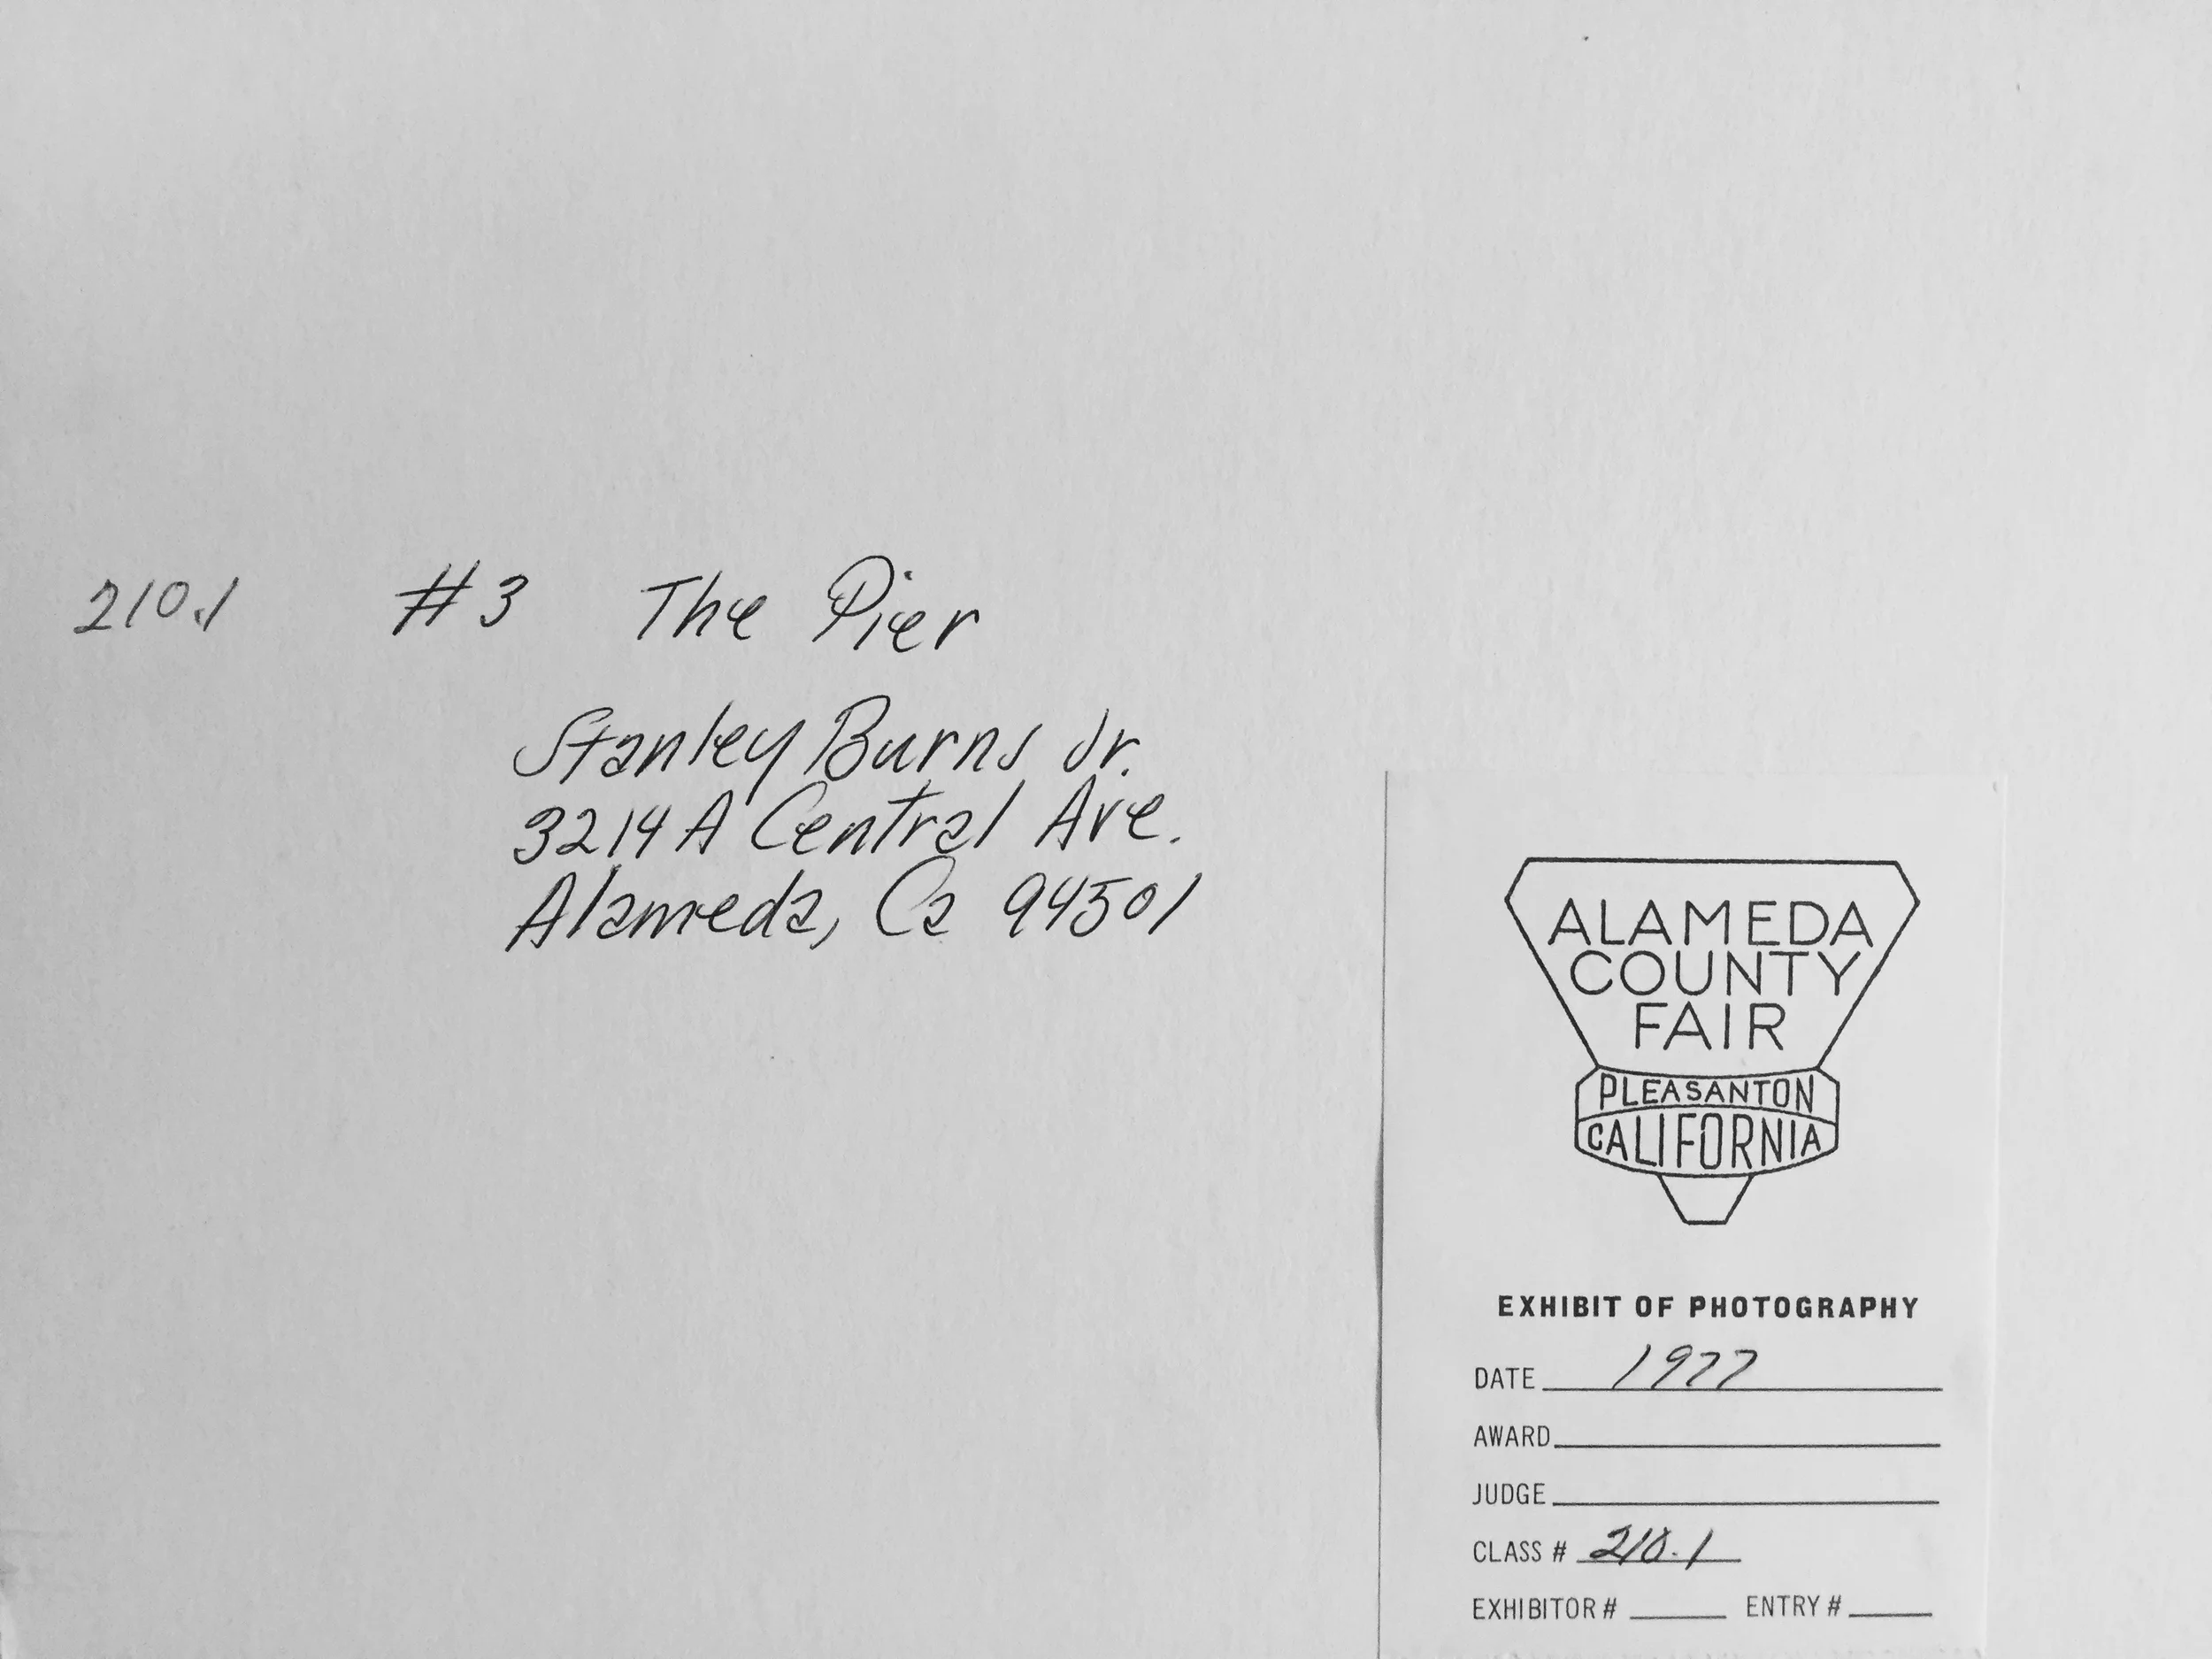 210.1 #3 The Pier
Stanley Burns Jr.
3214 A Central Ave.
Alameda, Ca 94501
ALAMEDA
COUNTY
FAIR
PLEASANTON
CALIFORNIA
EXHIBIT OF PHOTOGRAPHY
DATE 1977
AWARD
JUDGE
CLASS # 210.1
EXHIBITOR # ENTRY #